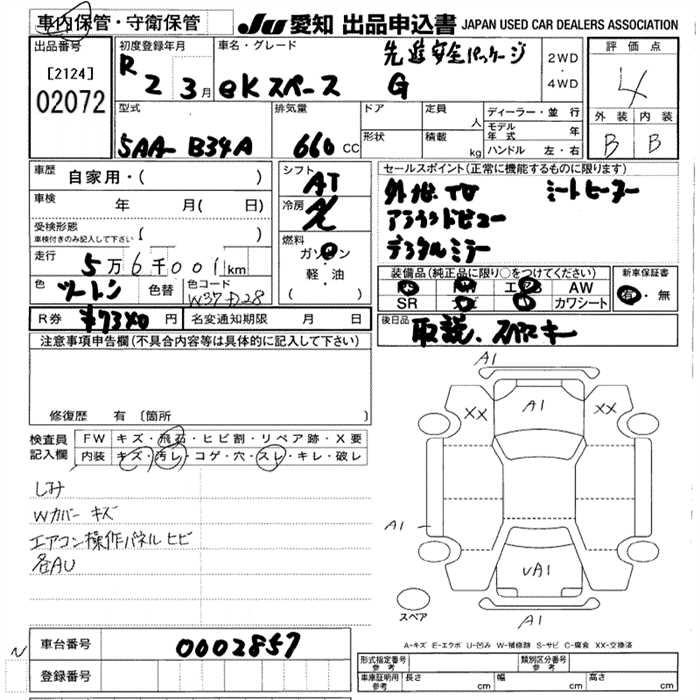 車内保管・守衛保管
JU 愛知 出品申込書 JAPAN USED CAR DEALERS ASSOCIATION
出品番号
[2124]
02072
初度登録年月
R 2 3月
車名・グレード
先進安全パッケージ
eKスペース G
2WD
・
4WD
評価点
4
外装 内装
B B
型式
5AA- B34A
排気量
660 CC
ドア
形状
定員 人
積載 kg
ディーラー・並行
モデル年式 年
ハンドル 左・右
車歴 自家用・( )
車検 年 月( 日)
受検形態
車検付きのみ記入して下さい ( )
走行 5万6千001km
色 ツートン 色替
色コード
W37 D28
シフト
AT
冷房
燃料
ガソリン
軽・油
( )
セールスポイント(正常に機能するものに限ります)
外地デジ シートヒーター
アラウンドビュー
デジタルミラー
装備品(純正品に限り○をつけてください)
PS PW エアB AW
SR カワシート
新車保証書
有・無
R券 ¥7340 円
名変通知期限 月 日
後日品 取説、スペアキー
注意事項申告欄(不具合内容等は具体的に記入して下さい)
修復歴 有 〔箇所
検査員
記入欄
FW キズ・飛石・ヒビ割・リペア跡・X要
内装 キズ・汚レ・コゲ・穴・スレ・キレ・破レ
シミ
Wカバー キズ
エアコン操作パネルヒビ
各AU
A1
XX A1 XX
A1
VA1
A1
スペア
A-キズ E-エクボ U-凹み W-補修跡 S-サビ C-腐食 XX-交換済
車台番号 0002857
登録番号
形式指定番号
参考
類別区分番号
参考
車庫証明用
参考
長さ cm
幅 cm
高さ cm